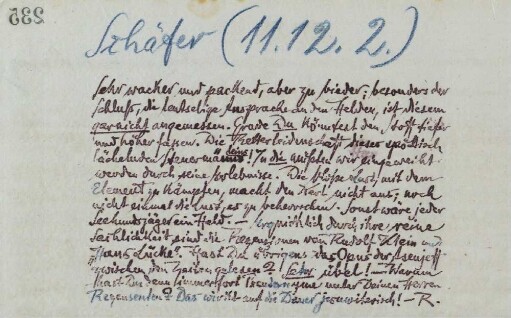 235
Schäfer (11.12. 2.)
Sehr wacker und packend, aber zu bieder; besonders der
Schluß, die leutselige Ansprache an den Helden, ist diesem
garnicht angemessen. Grade Du könntest den Stoff tiefer
und höher fassen. Die dieser spöttisch
lächelnden Steuermänner! In die müßten wir eingeweiht
werden durch seine Erlebnisse. Die bloße Lust, mit dem
Element zu kämpfen, macht den Kerl nicht aus, noch
nicht einmal die Lust, es zu beherrschen. Sonst wäre jeder
Seehundsjäger ein Held. — durch ihre reine
Sachlichkeit sind die Rezensionen von Rudolf Klein und
Hans Lücke. Hast Du übrigens das Opus der
zwischen den gelesen? Sehr übel! — Warum
hast Du denn immerfort unter Deinen Herren
Rezensenten? Das wirkt auf die Dauer jesuitisch! — R.